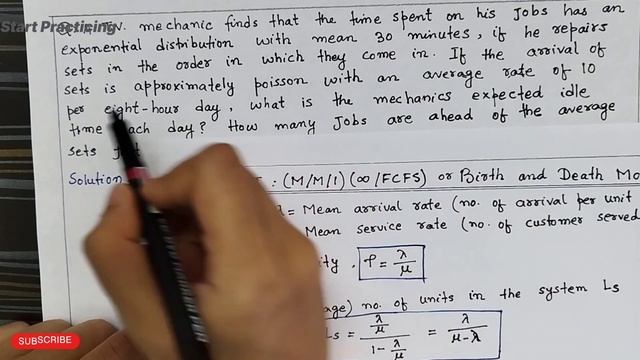 Start Practicing
T.V. mechanic finds that the time spent on his Jobs has an
exponential distribution with mean 30 minutes, if he repairs
sets in the order in which they come in. If the arrival of
sets is approximately poisson with an average rate of 10
per eight-hour day, what is the mechanics expected idle
time each day? How many Jobs are ahead of the average
sets
Solution : (M/M/1) (∞/FCFS) or Birth and Death Mo
= Mean arrival rate (no. of arrival per unit
Mean service rate (no. of customer served
ity, ρ = λ/μ
age) no. of units in the system Ls
Ls = (λ/μ)/(1 - λ/μ) = λ/(μ-λ)
SUBSCRIBE